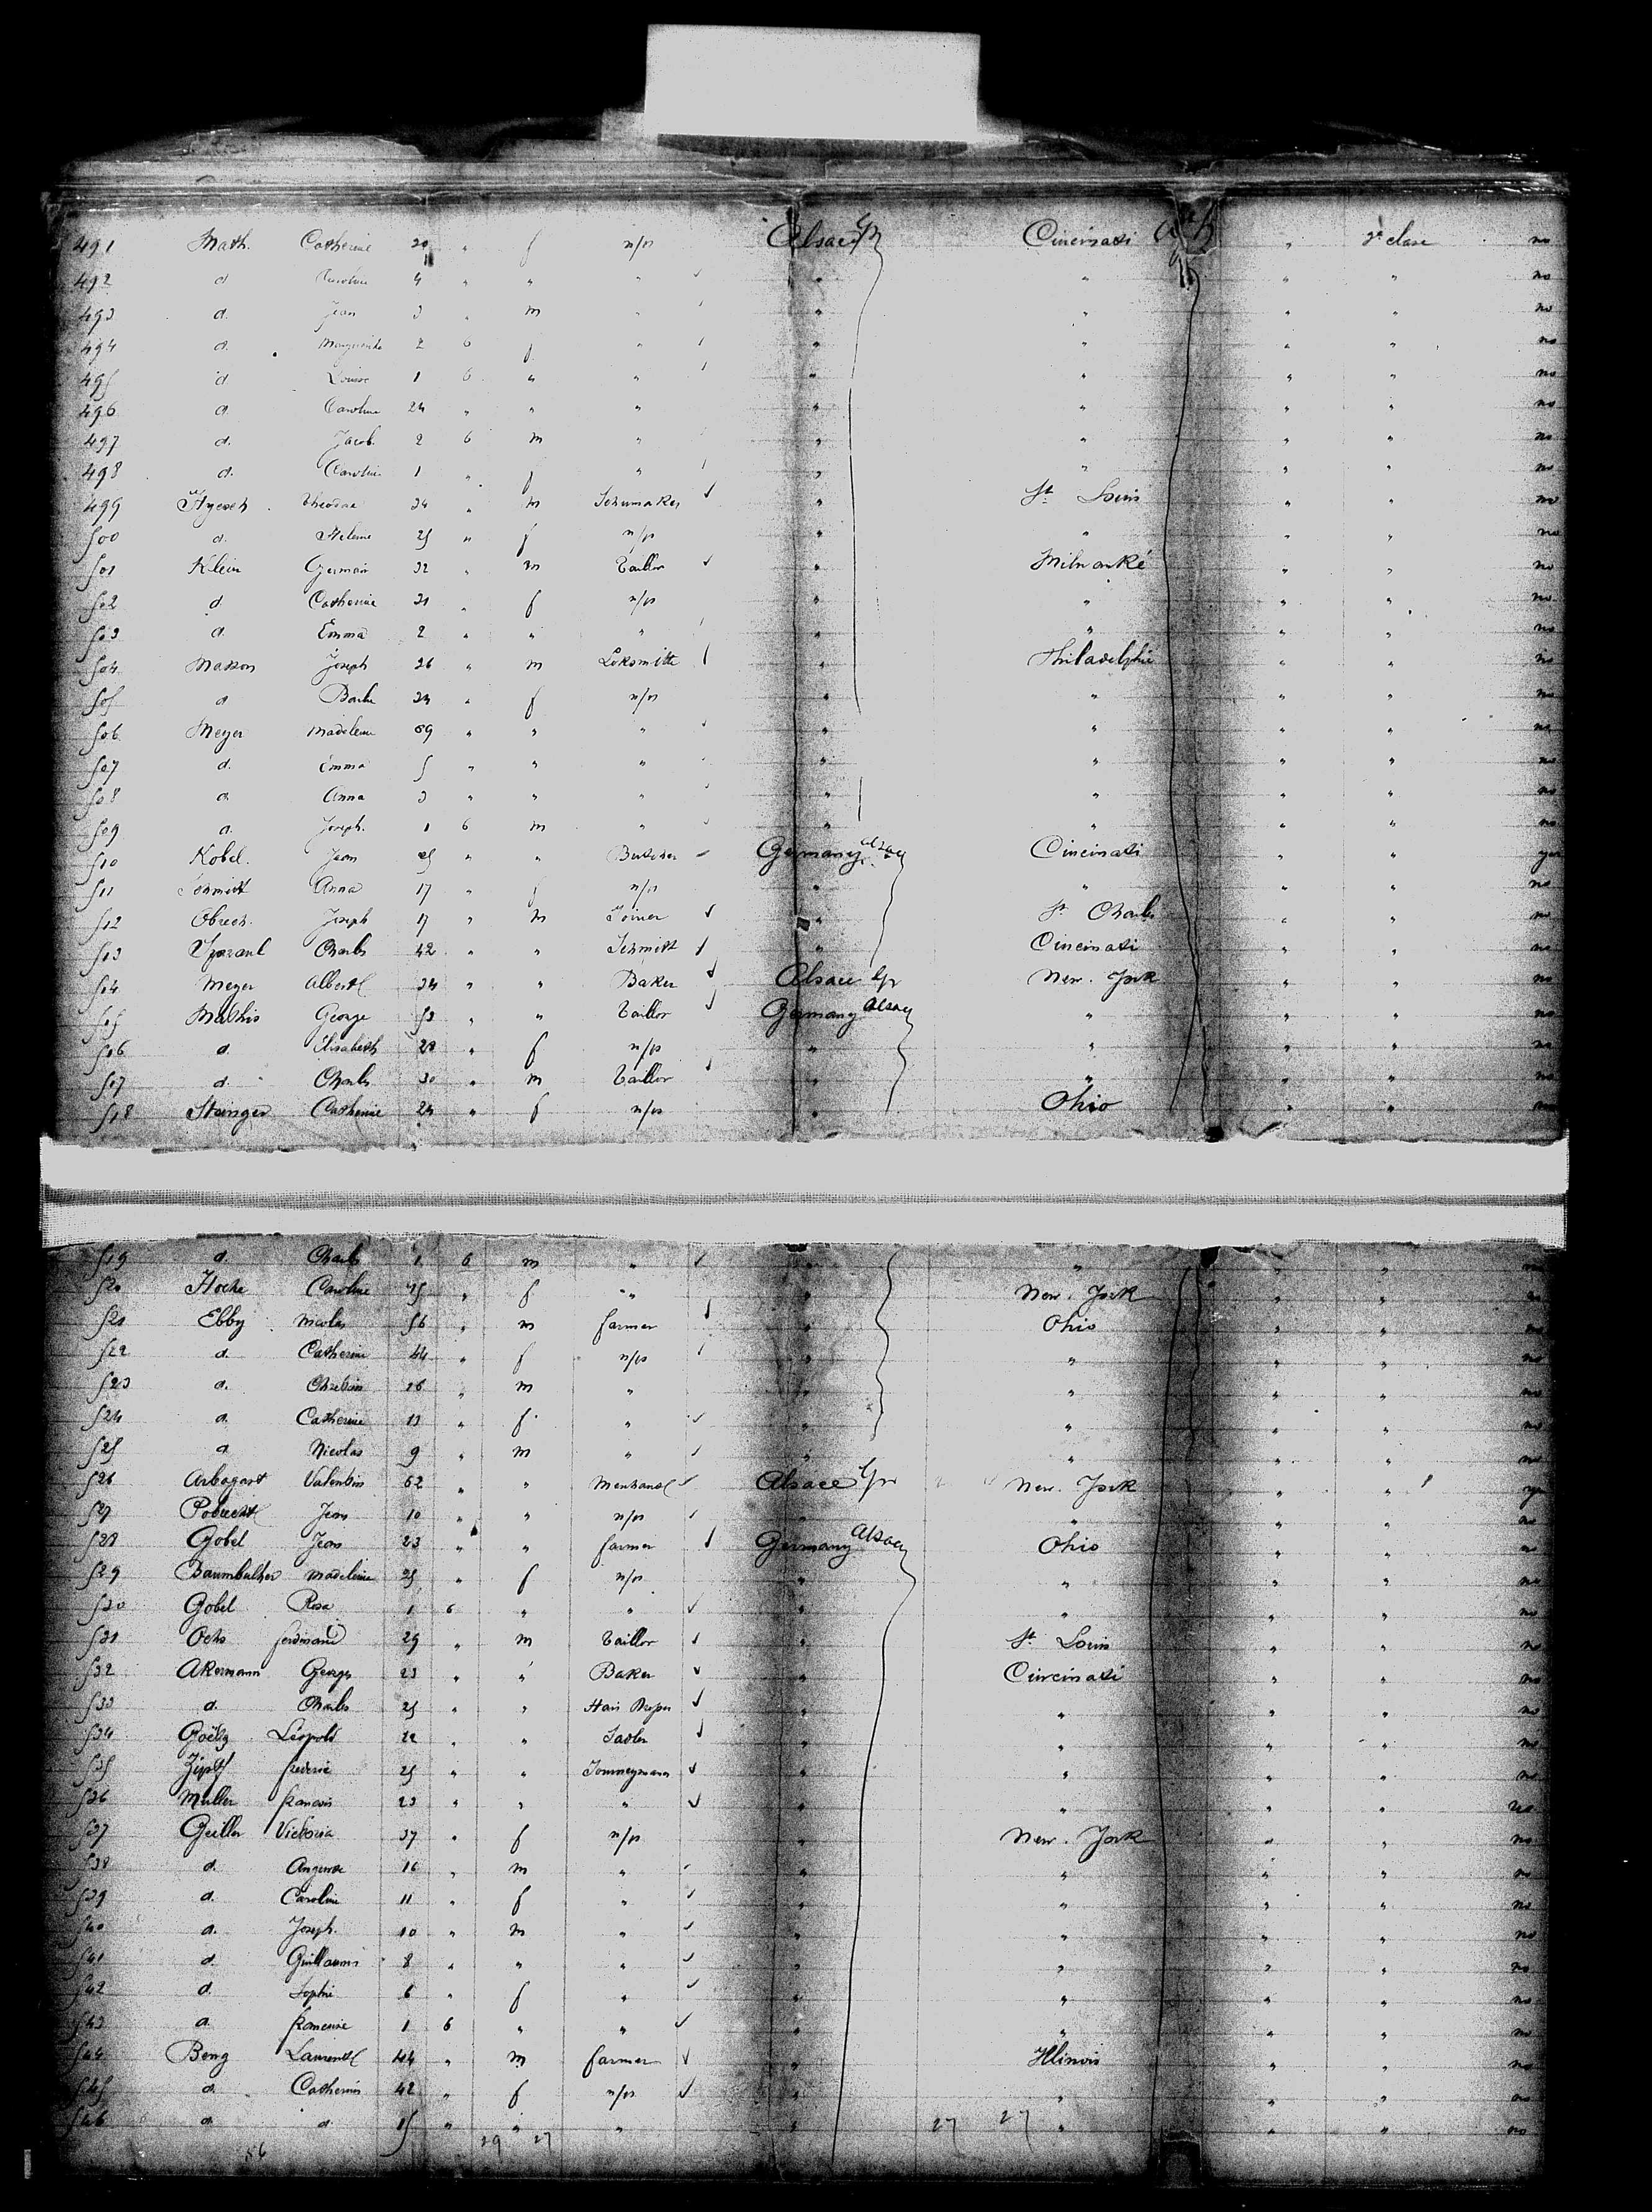 491 Math. Catherine 20 " f n/ps Alsace Cincinati " 3e clase no
492 d Caroline 4 " " " " " " " no
493 d. Jean 3 " m " " " " " no
494 d. Marguerite 2 6 f " " " " " no
495 d Louise 1 6 " " " " " " no
496 d. Caroline 24 " " " " " " " no
497 d. Jacob 2 6 m " " " " " no
498 d. Caroline 1 " f " " " " " no
499 Theodore 34 " m Schumaker " St Louis " " no
500 d. Helene 25 " f n/ps " " " " no
501 Klein Germain 32 " m Taillor " Milwauké " " no
502 d. Catherine 31 " f n/ps " " " " no
503 d. Emma 2 " " " " " " " no
504 Masson Joseph 26 " m Loksmith " Philadelphie " " no
505 d Barbe 34 " f n/ps " " " " no
506 Meyer Madeleine 69 " " " " " " " no
507 d. Emma 5 " " " " " " " no
508 d. Anna 3 " " " " " " " no
509 d. Joseph. 1 6 m " " " " " no
510 Kobel. Jean " " Butcher Germany Alsace Cincinati " " yes
511 Schmitt Anna 17 " f n/ps " " " " no
512 Obrech. Joseph 17 " m Joiner " St Charles " " no
513 Charles 42 " " Schmitt " Cincinati " " no
514 Meyer Albert 34 " " Baker Alsace New. York " " no
515 Mathis George 53 " " Taillor Germany Alsace " " " no
516 d. Elisabeth 28 " f n/ps " " " " no
517 d. Charles 30 " m Taillor " " " " no
518 Stanger Catherine 24 " f n/ps " Ohio " " no
519 d. Charles 1 6 m " " " " " no
520 Hoche Caroline " f " " " New. York " " no
521 Ebby Nicolas 56 " m farmer " Ohio " " no
522 d. Catherine 44 " f n/ps " " " " no
523 d. 16 " m " " " " " no
524 d. Catherine 13 " f. " " " " " no
525 d Nicolas 9 " m " " " " " no
526 Arbogast Valentin 62 " " Merchand Alsace New. York " " yes
527 Jean 10 " " n/ps " " " " no
528 Gobel Jean 23 " " farmer Germany Alsace Ohio " " no
529 Madeleine 25 " f n/ps " " " " no
530 Gobel Rosa 1 6 " " " " " " no
531 Ochs ferdinand 29 " m Taillor " St Louis " " no
532 Akermann George 23 " " Baker " Cincinati " " no
533 d. Charles 25 " " " " " " no
534 Goëtz Léopold 22 " " Sadler " " " " no
535 Zipf frederic 25 " " Journeyman " " " " no
536 Muller francois 23 " " " " " " "
537 Victoria 37 " f n/ps " New. York " " no
538 d. 16 " m " " " " " no
539 d. Caroline 11 " f " " " " " no
540 d. Joseph. 10 " m " " " " " no
541 d. Guillaume 8 " " " " " " " no
542 d. Sophie 6 " f " " " " " no
543 d. 1 6 " " " " " " no
544 Laurent 44 " m farmer " Illinois " " no
545 d. Catherine 42 " f n/ps " " " " no
546 d. d. 15 " " " " " " " no
56 29 27 27 27